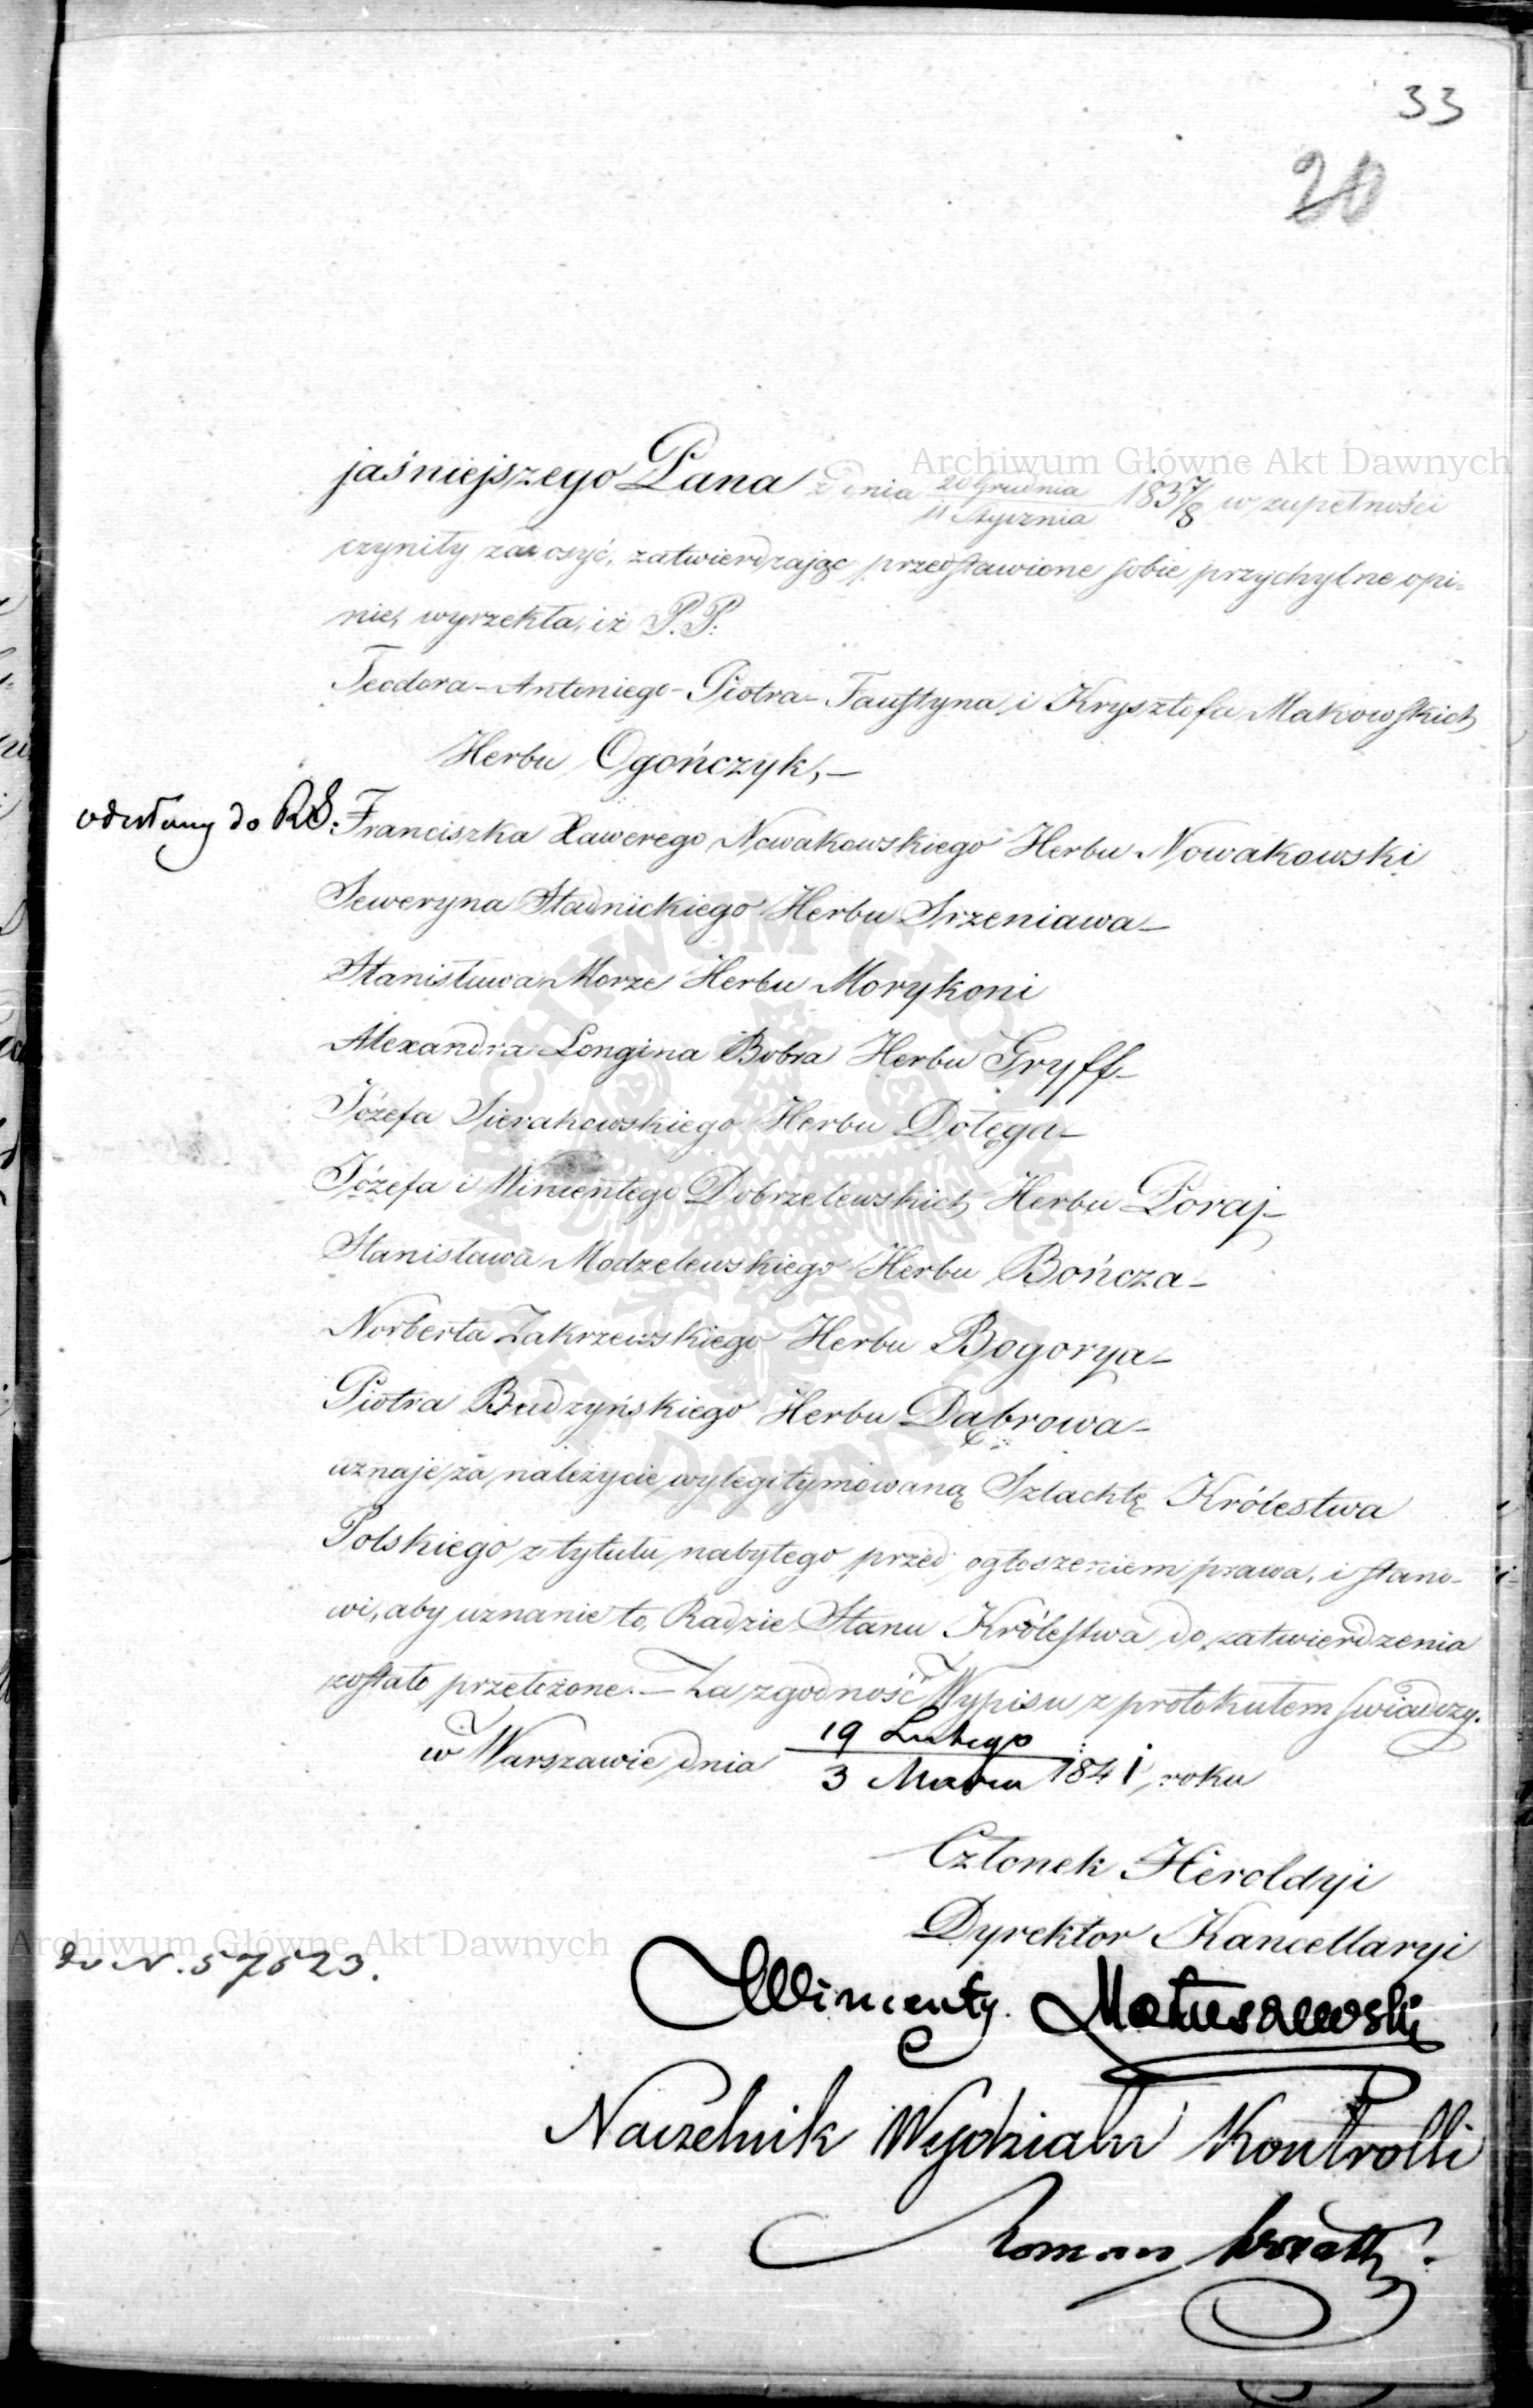 33
20
jaśniejszego Pana z dnia 20 Grudnia / 11 Stycznia 1837/8 w zupełności
czyniły zadosyć, zatwierdzając przedstawione sobie przychylne opi-
nie, wyrzekła, iż P.P.
Teodora-Antoniego-Piotra-Faustyna i Krysztofa Makowskich
Herbu Ogończyk,—
odesłany do RS: Franciszka Xawerego Nowakowskiego Herbu Nowakowski
Seweryna Stadnickiego Herbu Srzeniawa—
Stanisława Morze Herbu Morykoni
Alexandra Longina Bobra Herbu Gryff—
Józefa Sierakowskiego Herbu Dołęga—
Józefa i Wincentego Dobrzelewskich Herbu Poraj—
Stanisława Modzelewskiego Herbu Bończa—
Norberta Zakrzewskiego Herbu Bogorya—
Piotra Budzyńskiego Herbu Dąbrowa—
uznaje za należycie wylegitymowaną Szlachtę Królestwa
Polskiego z tytułu nabytego przed ogłoszeniem prawa, i stano-
wi, aby uznanie to, Radzie Stanu Królestwa do zatwierdzenia
zostało przełożone.— Za zgodność Wypisu z protokułem świadczy.
w Warszawie dnia 19 Lutego / 3 Marca 1841 roku
Członek Heroldyi
Dyrektor Kancellaryi
do N. 57523.
Wincenty Matuszewski
Naczelnik Wydziału Kontrolli
Roman
Archiwum Główne Akt Dawnych
Archiwum Główne Akt Dawnych
ARCHIWUM GŁÓWNE AKT DAWNYCH